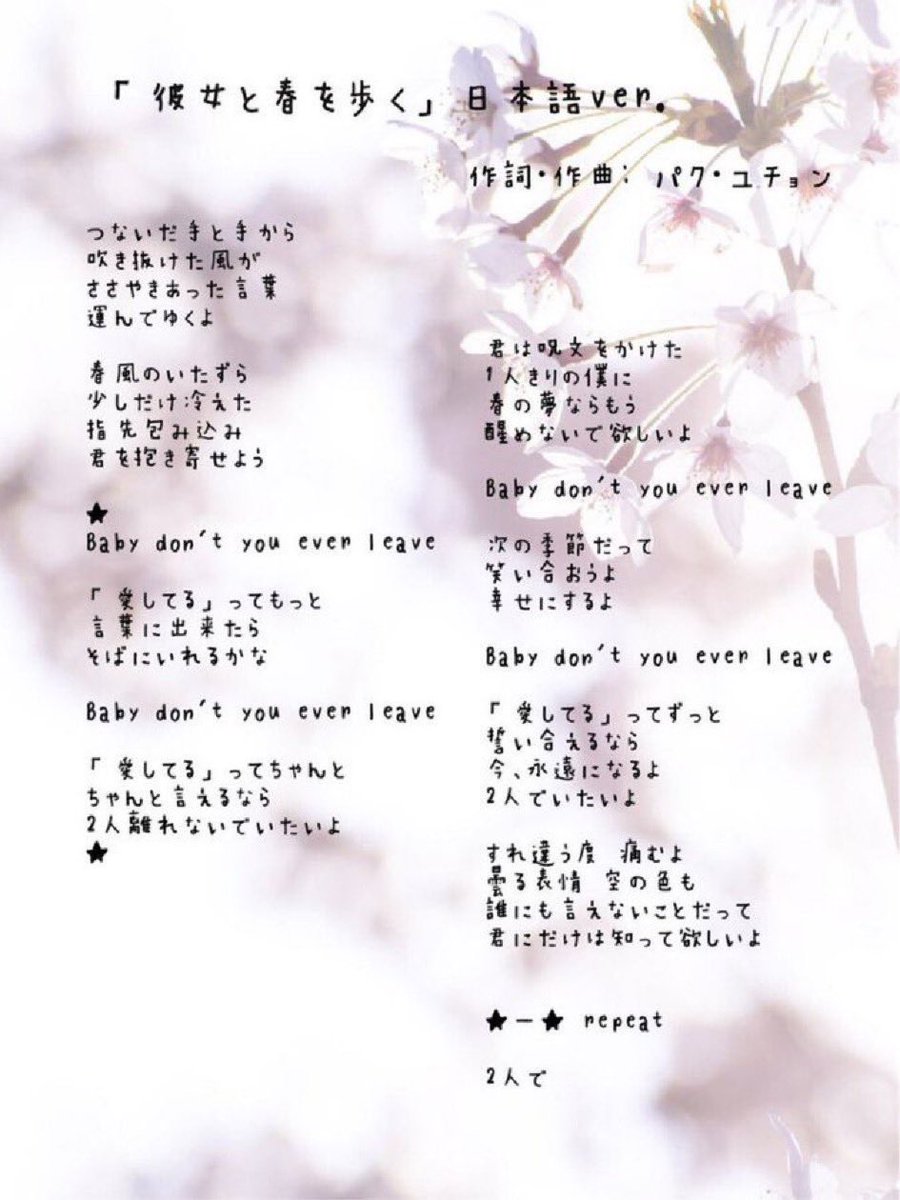 「彼女と春を歩く」日本語ver.
作詞・作曲: パク・ユチョン
つないだ手と手から
吹き抜けた風が
ささやきあった言葉
運んでゆくよ
春風のいたずら
少しだけ冷えた
指先包み込み
君を抱き寄せよう
★
Baby don't you ever leave
「愛してる」ってもっと
言葉に出来たら
そばにいれるかな
Baby don't you ever leave
「愛してる」ってちゃんと
ちゃんと言えるなら
2人離れないでいたいよ
★
君は呪文をかけた
1人きりの僕に
春の夢ならもう
醒めないで欲しいよ
Baby don't you ever leave
次の季節だって
笑い合おうよ
幸せにするよ
Baby don't you ever leave
「愛してる」ってずっと
誓い合えるなら
今、永遠になるよ
2人でいたいよ
すれ違う度 痛むよ
曇る表情 空の色も
誰にも言えないことだって
君にだけは知って欲しいよ
★ー★ repeat
2人で